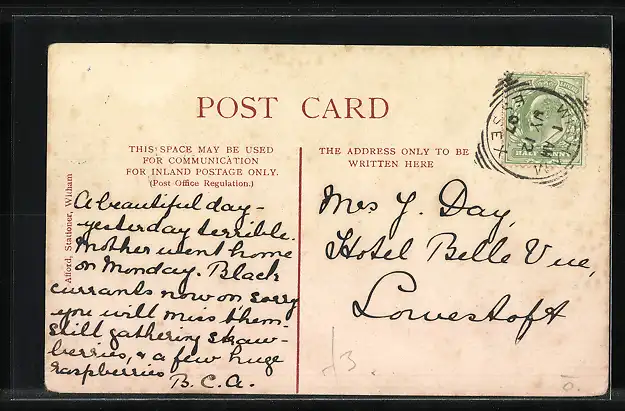 POST CARD
THIS SPACE MAY BE USED
FOR COMMUNICATION
FOR INLAND POSTAGE ONLY.
(Post Office Regulation.)
THE ADDRESS ONLY TO BE
WRITTEN HERE
Afford, Stationer, Witham
A beautiful day -
yesterday terrible.
Mother went home
on Monday. Black
currants now on, sorry
you will miss them -
still gathering straw-
berries, & a few huge
raspberries
B. C. A.
Mrs J. Day,
Hotel Belle Vue,
Lowestoft
WITHAM
ESSEX